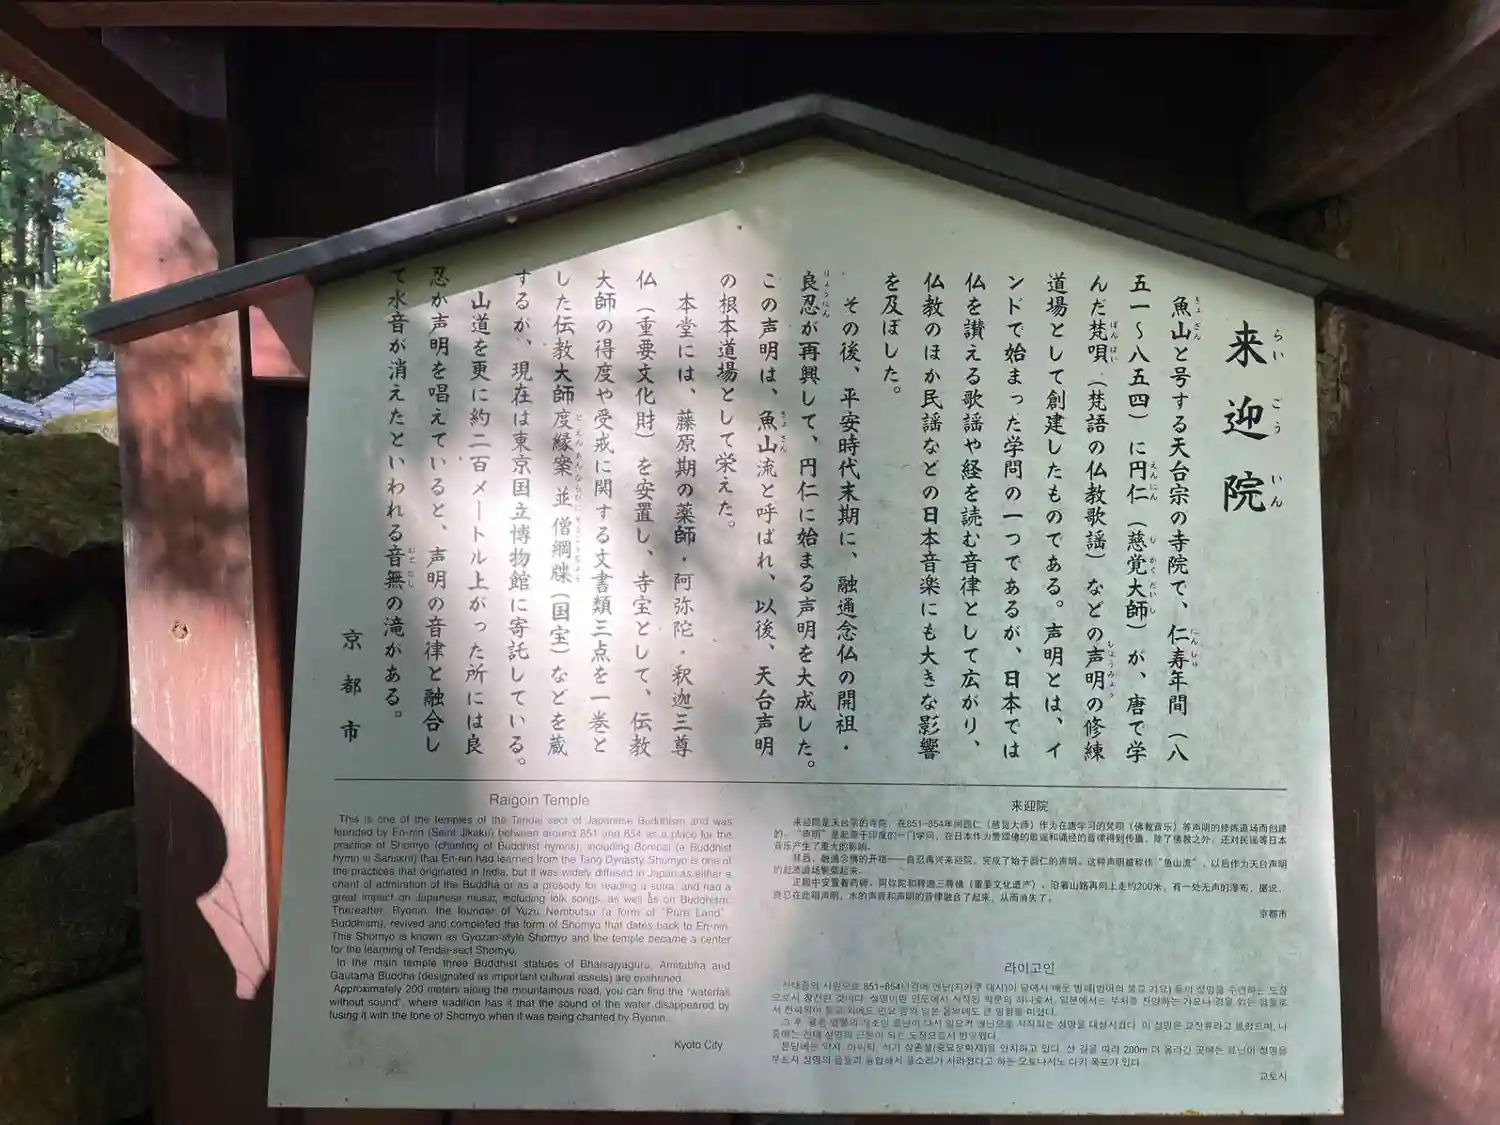 来迎院
らいこういん
魚山と号する天台宗の寺院で、仁寿年間（八
五一～八五四）に円仁（慈覚大師）が、唐で学
んだ梵唄（梵語の仏教歌謡）などの声明の修練
道場として創建したものである。声明とは、イ
ンドで始まった学問の一つであるが、日本では
仏を讃える歌謡や経を読む音律として広がり、
仏教のほか民謡などの日本音楽にも大きな影響
を及ぼした。
その後、平安時代末期に、融通念仏の開祖・
良忍が再興して、円仁に始まる声明を大成した。
この声明は、魚山流と呼ばれ、以後、天台声明
の根本道場として栄えた。
本堂には、藤原期の薬師・阿弥陀・釈迦三尊
仏（重要文化財）を安置し、寺宝として、伝教
大師の得度や受戒に関する文書類三点を一巻と
した伝教大師度縁案並僧綱牒（国宝）などを蔵
するが、現在は東京国立博物館に寄託している。
山道を更に約二百メートル上がった所には良
忍が声明を唱えていると、声明の音律と融合し
て水音が消えたといわれる音無の滝がある。
京都市
Raigoin Temple
This is one of the temples of the Tendai sect of Japanese Buddhism and was
founded by En-nin (Saint Jikaku) between around 851 and 854 as a place for the
practice of Shomyo (chanting of Buddhist hymns), including Bombai (a Buddhist
hymn in Sanskrit) that En-nin had learned from the Tang Dynasty. Shomyo is one of
the practices that originated in India, but it was widely diffused in Japan as either a
chant of admiration of the Buddha or as a prosody for reading a sutra, and had a
great impact on Japanese music, including folk songs, as well as on Buddhism.
Thereafter, Ryonin, the founder of Yuzu Nembutsu (a form of "Pure Land"
Buddhism), revived and completed the form of Shomyo that dates back to En-nin.
This Shomyo is known as Gyozan-style Shomyo and the temple became a center
for the learning of Tendai-sect Shomyo.
In the main temple three Buddhist statues of Bhaisajyaguru, Amitabha and
Gautama Buddha (designated as important cultural assets) are enshrined.
Approximately 200 meters along the mountainous road, you can find the "waterfall
without sound", where tradition has it that the sound of the water disappeared by
fusing it with the tone of Shomyo when it was being chanted by Ryonin.
Kyoto City
来迎院
来迎院是天台宗的寺院，在851-854年间圆仁（慈觉大师）作为在唐学习的梵呗（佛教音乐）等声明的修炼道场而创建
的。"声明"是起源于印度的一门学问，在日本作为赞颂佛的歌谣和诵经的音律得到传播，除了佛教之外，还对民谣等日本
音乐产生了重大的影响。
其后，融通念佛的开祖——良忍再兴来迎院，完成了始于圆仁的声明。这种声明被称作"鱼山流"，以后作为天台声明
的起源道场繁荣起来。
正殿中安置着药师、阿弥陀和释迦三尊佛（重要文化遗产）。沿着山路再向上走约200米，有一处无声的瀑布，据说，
良忍在此唱声明，水的声音和声明的音律融合了起来，从而消失了。
京都市
라이고인
교토시